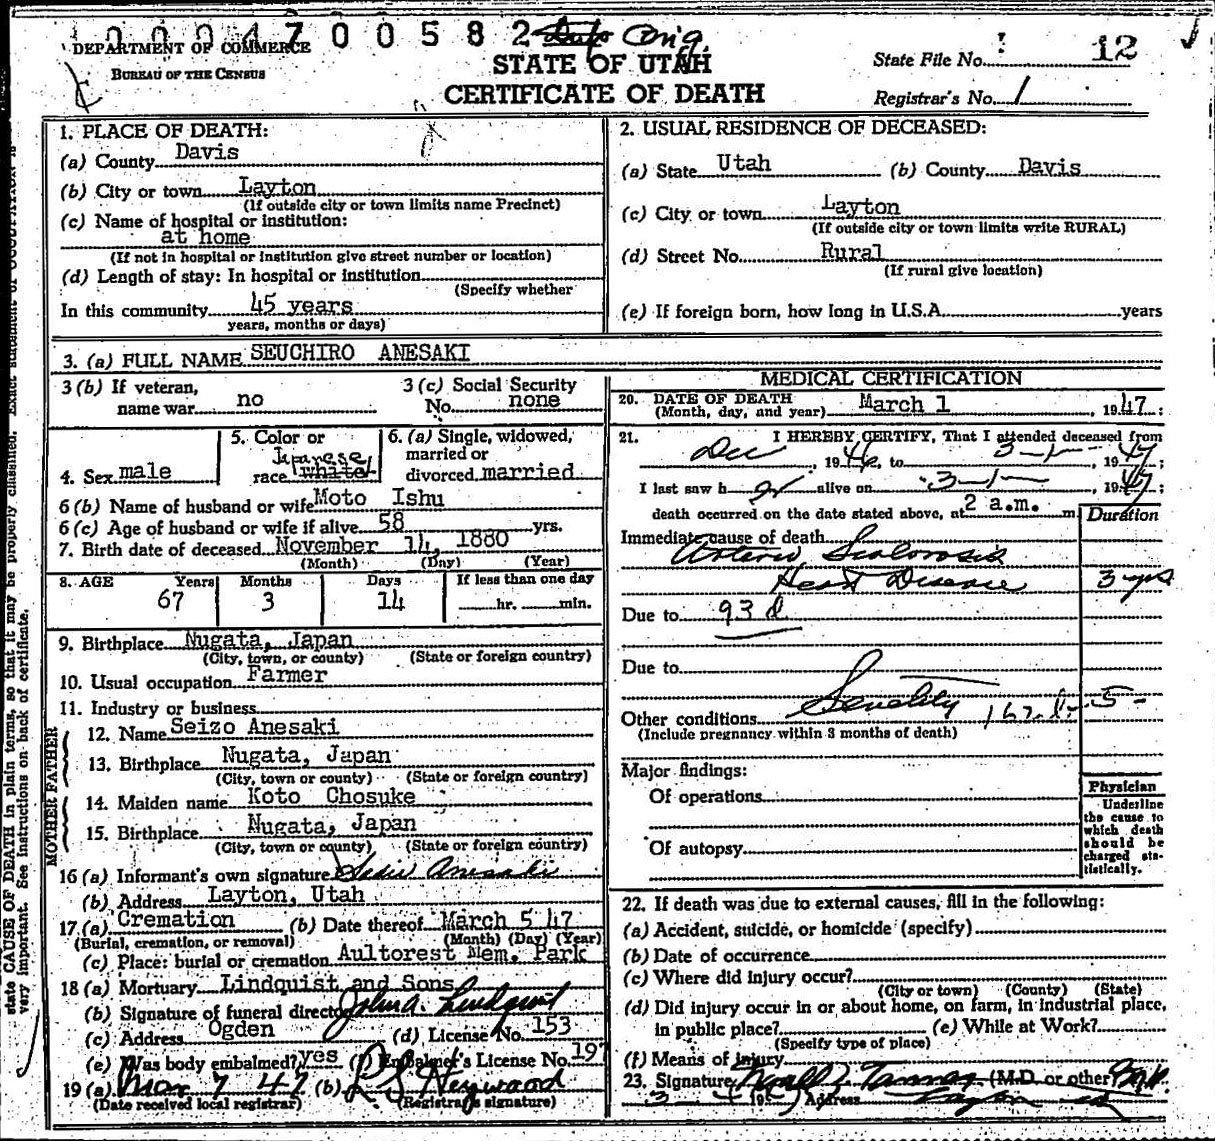 0004700582 Orig.
DEPARTMENT OF COMMERCE
BUREAU OF THE CENSUS
STATE OF UTAH
CERTIFICATE OF DEATH
State File No. 12
Registrar's No. 1
1. PLACE OF DEATH:
(a) County Davis
(b) City or town Layton
(If outside city or town limits name Precinct)
(c) Name of hospital or institution:
at home
(If not in hospital or institution give street number or location)
(d) Length of stay: In hospital or institution
(Specify whether
In this community 45 years
years, months or days)
2. USUAL RESIDENCE OF DECEASED:
(a) State Utah (b) County Davis
(c) City or town Layton
(If outside city or town limits write RURAL)
(d) Street No. Rural
(If rural give location)
(e) If foreign born, how long in U.S.A. years
3. (a) FULL NAME SEUCHIRO ANESAKI
3 (b) If veteran,
name war no
3 (c) Social Security
No. none
4. Sex male
5. Color or
Japanese
race white
6. (a) Single, widowed,
married or
divorced married
6 (b) Name of husband or wife Moto Ishu
6 (c) Age of husband or wife if alive 58 yrs.
7. Birth date of deceased November 14, 1880
(Month) (Day) (Year)
8. AGE Years Months Days If less than one day
67 3 14 hr. min.
9. Birthplace Nugata, Japan
(City, town, or county) (State or foreign country)
10. Usual occupation Farmer
11. Industry or business
FATHER
12. Name Seizo Anesaki
13. Birthplace Nugata, Japan
(City, town or county) (State or foreign country)
MOTHER
14. Maiden name Koto Chosuke
15. Birthplace Nugata, Japan
(City, town or county) (State or foreign country)
16 (a) Informant's own signature Anesaki
(b) Address Layton, Utah
17 (a) Cremation (b) Date thereof March 5 47
(Burial, cremation, or removal) (Month) (Day) (Year)
(c) Place: burial or cremation Aultorest Mem. Park
18 (a) Mortuary Lindquist and Sons
(b) Signature of funeral director John A. Lindquist
(c) Address Ogden (d) License No. 153
(e) Was body embalmed? yes (f) Embalmer's License No. 197
19 (a) Mar 7 47 (b) L S Heywood
(Date received local registrar) (Registrar's signature)
MEDICAL CERTIFICATION
20. DATE OF DEATH
(Month, day, and year) March 1, 1947;
21. I HEREBY CERTIFY, That I attended deceased from
Dec, 1946, to 3-1-, 1947;
I last saw h er alive on 3-1-, 1947;
death occurred on the date stated above, at 2 a.m. m.
Duration
Immediate cause of death
Arterio Sclorosis
Heart Disease 3 yrs
Due to 93 d
Due to
Other conditions Senility 162 b- 5-
(Include pregnancy within 3 months of death)
Major findings:
Of operations
Of autopsy
Physician
Underline
the cause to
which death
should be
charged sta-
tistically.
22. If death was due to external causes, fill in the following:
(a) Accident, suicide, or homicide (specify)
(b) Date of occurrence
(c) Where did injury occur?
(City or town) (County) (State)
(d) Did injury occur in or about home, on farm, in industrial place,
in public place? (e) While at Work?
(Specify type of place)
(f) Means of injury
23. Signature Noall Z. Tanner (M.D. or other)
Address Layton
state CAUSE OF DEATH in plain terms, so that it may be properly classified. Exact statement of OCCUPATION is
very important. See instructions on back of certificate.